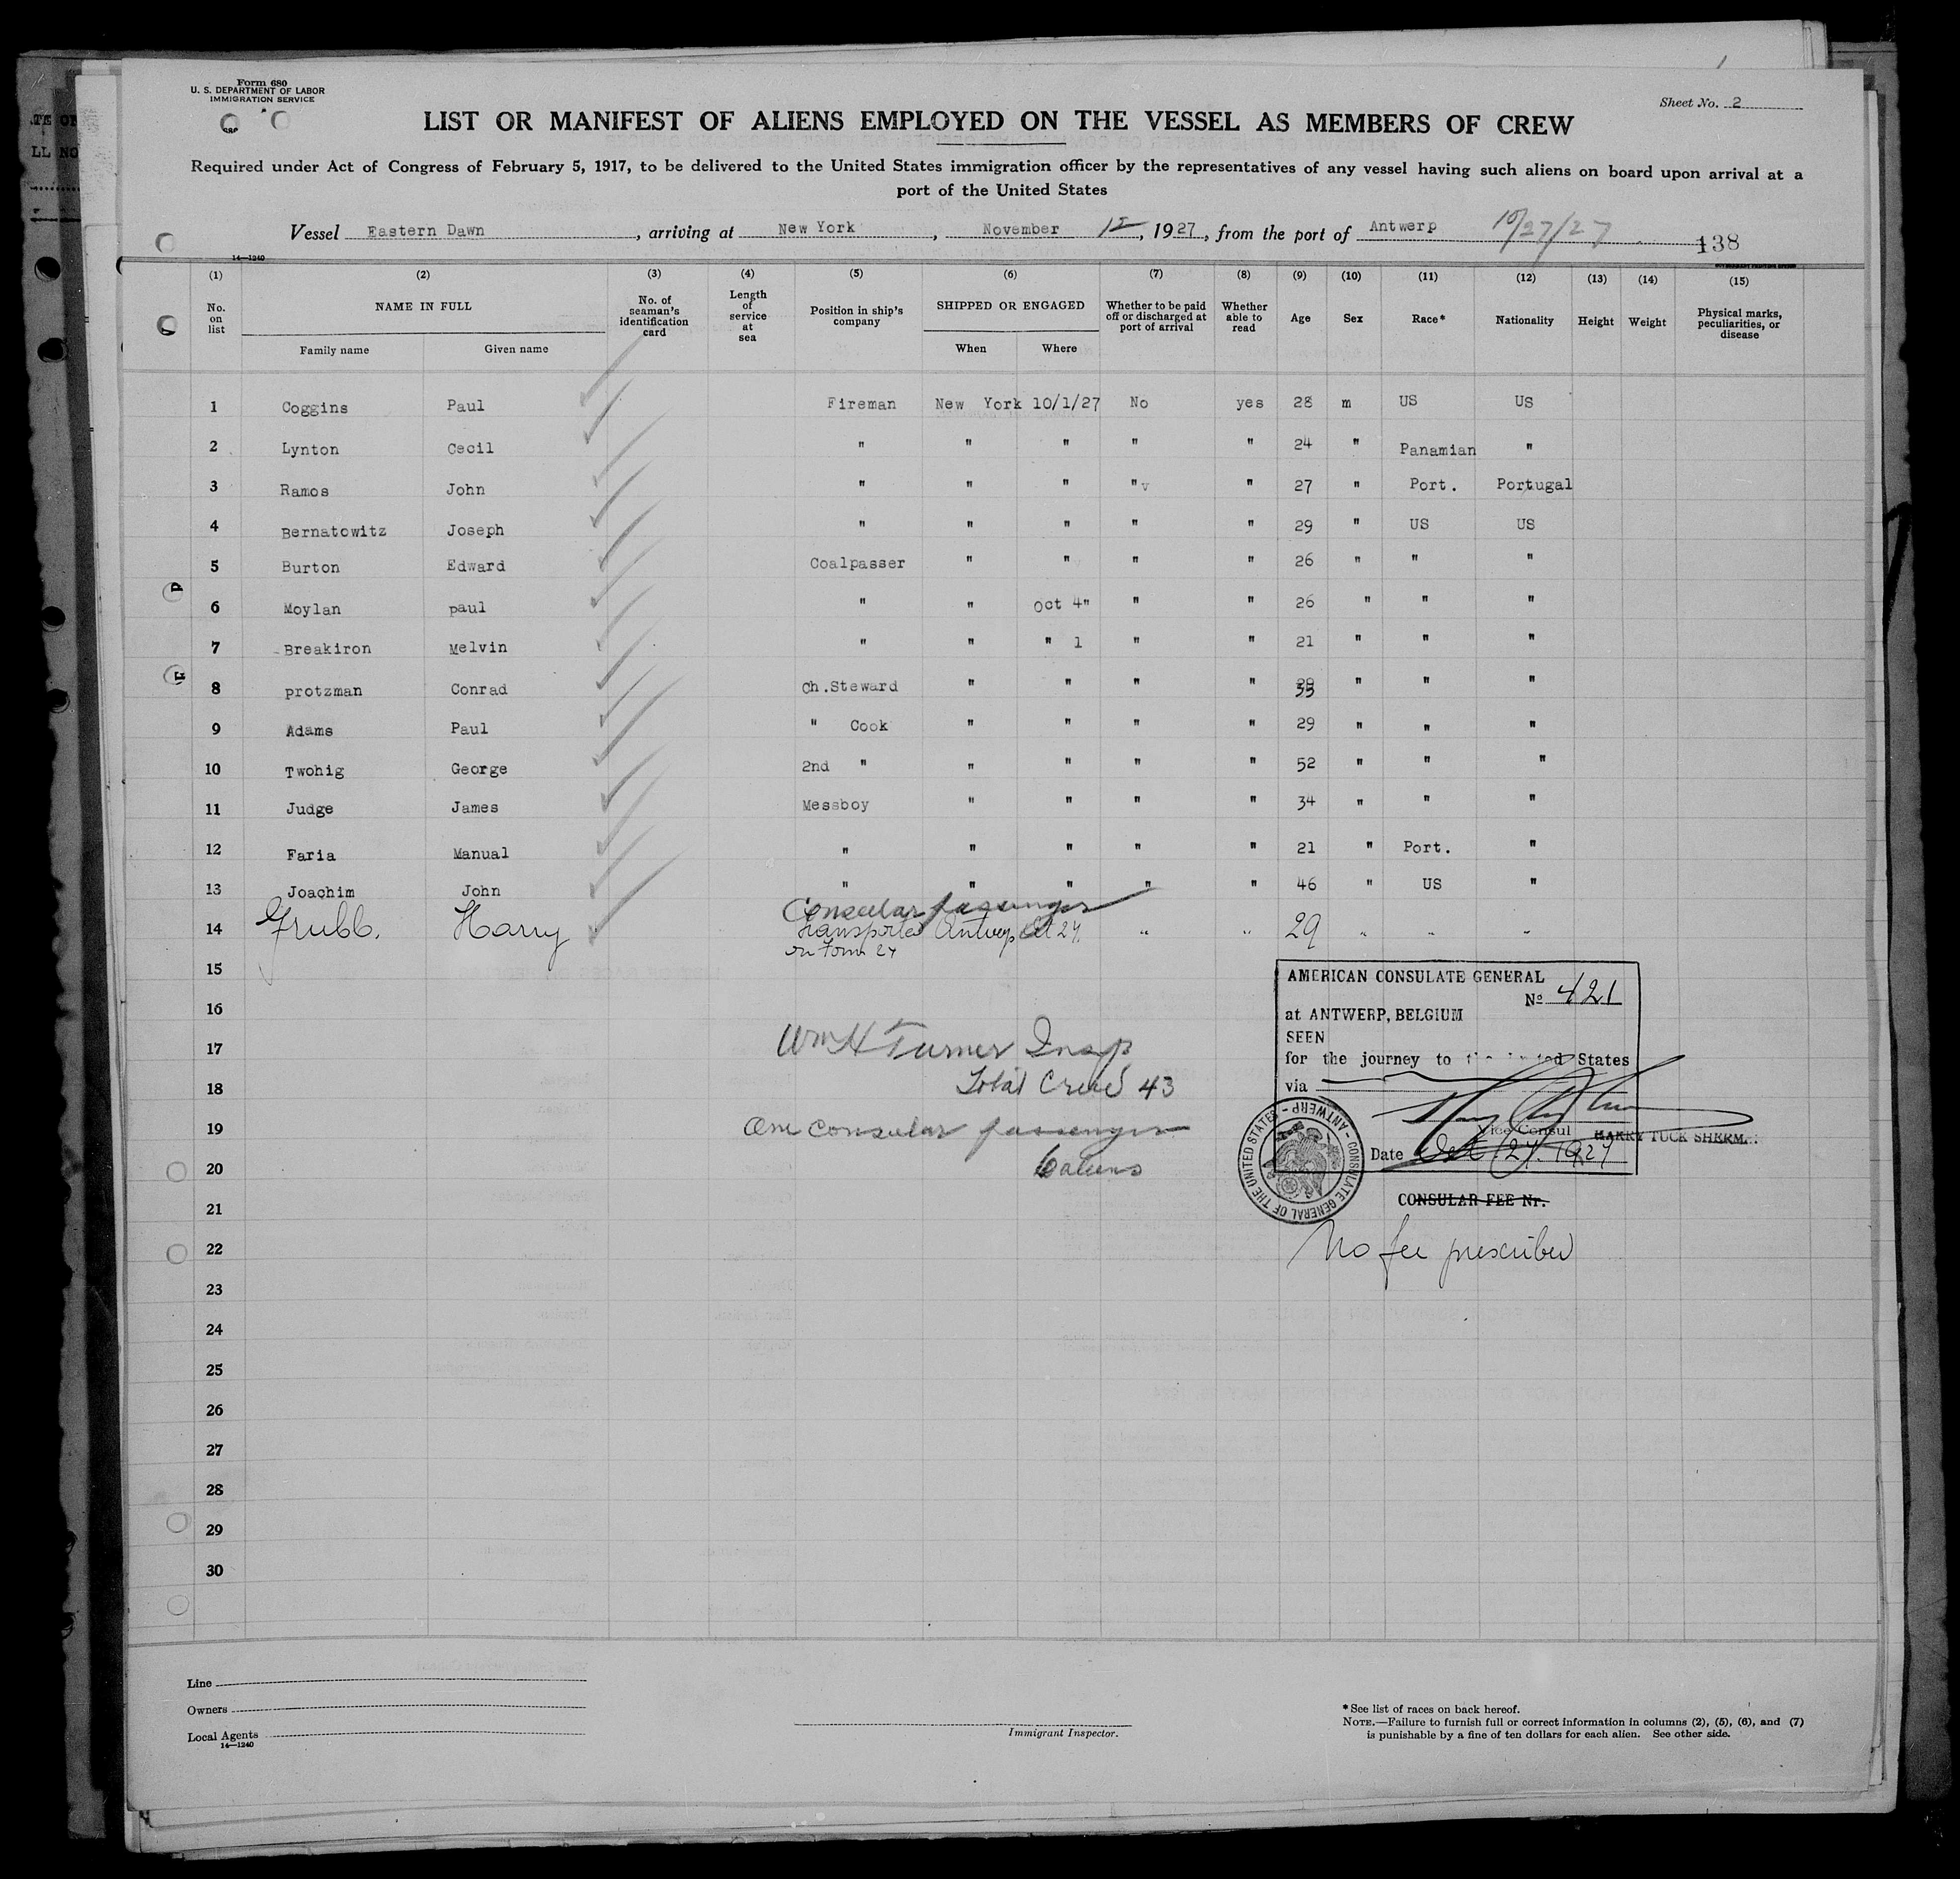 Form 680
U. S. DEPARTMENT OF LABOR
IMMIGRATION SERVICE
Sheet No. 2
LIST OR MANIFEST OF ALIENS EMPLOYED ON THE VESSEL AS MEMBERS OF CREW
Required under Act of Congress of February 5, 1917, to be delivered to the United States immigration officer by the representatives of any vessel having such aliens on board upon arrival at a
port of the United States
Vessel Eastern Dawn, arriving at New York, November 12, 1927, from the port of Antwerp 10/27/27
138
14—1240
(1) (2) (3) (4) (5) (6) (7) (8) (9) (10) (11) (12) (13) (14) (15)
No. on list NAME IN FULL No. of seaman's identification card Length of service at sea Position in ship's company SHIPPED OR ENGAGED Whether to be paid off or discharged at port of arrival Whether able to read Age Sex Race* Nationality Height Weight Physical marks, peculiarities, or disease
Family name Given name When Where
1 Coggins Paul Fireman New York 10/1/27 No yes 28 m US US
2 Lynton Cecil " " " " " 24 " Panamian "
3 Ramos John " " " " v " 27 " Port. Portugal
4 Bernatowitz Joseph " " " " " 29 " US US
5 Burton Edward Coalpasser " " " " 26 " " "
6 Moylan paul " " Oct 4" " " 26 " " "
7 Breakiron Melvin " " " 1 " " 21 " " "
8 protzman Conrad Ch.Steward " " " " 33 " " "
9 Adams Paul " Cook " " " " 29 " " "
10 Twohig George 2nd " " " " " 52 " " "
11 Judge James Messboy " " " " 34 " " "
12 Faria Manual " " " " " 21 " Port. "
13 Joachim John " " " " " 46 " US "
Consular passenger
14 Grubb. Harry Transported Antwerp Oct 27. " " 29 " " "
on Form 24
15
16
17
18
19
20
21
22
23
24
25
26
27
28
29
30
Wm H Turner Insp
Total Crew 43
One consular passenger
6 aliens
AMERICAN CONSULATE GENERAL
No 421
at ANTWERP, BELGIUM
SEEN
for the journey to the United States
via
Vice Consul HARRY TUCK SHERM
Date Oct 27. 1927
CONSULATE GENERAL OF THE UNITED STATES - ANTWERP -
CONSULAR FEE Nr.
No fee prescribed
Line
Owners
Local Agents
14—1240
Immigrant Inspector.
* See list of races on back hereof.
NOTE.—Failure to furnish full or correct information in columns (2), (5), (6), and (7)
is punishable by a fine of ten dollars for each alien. See other side.